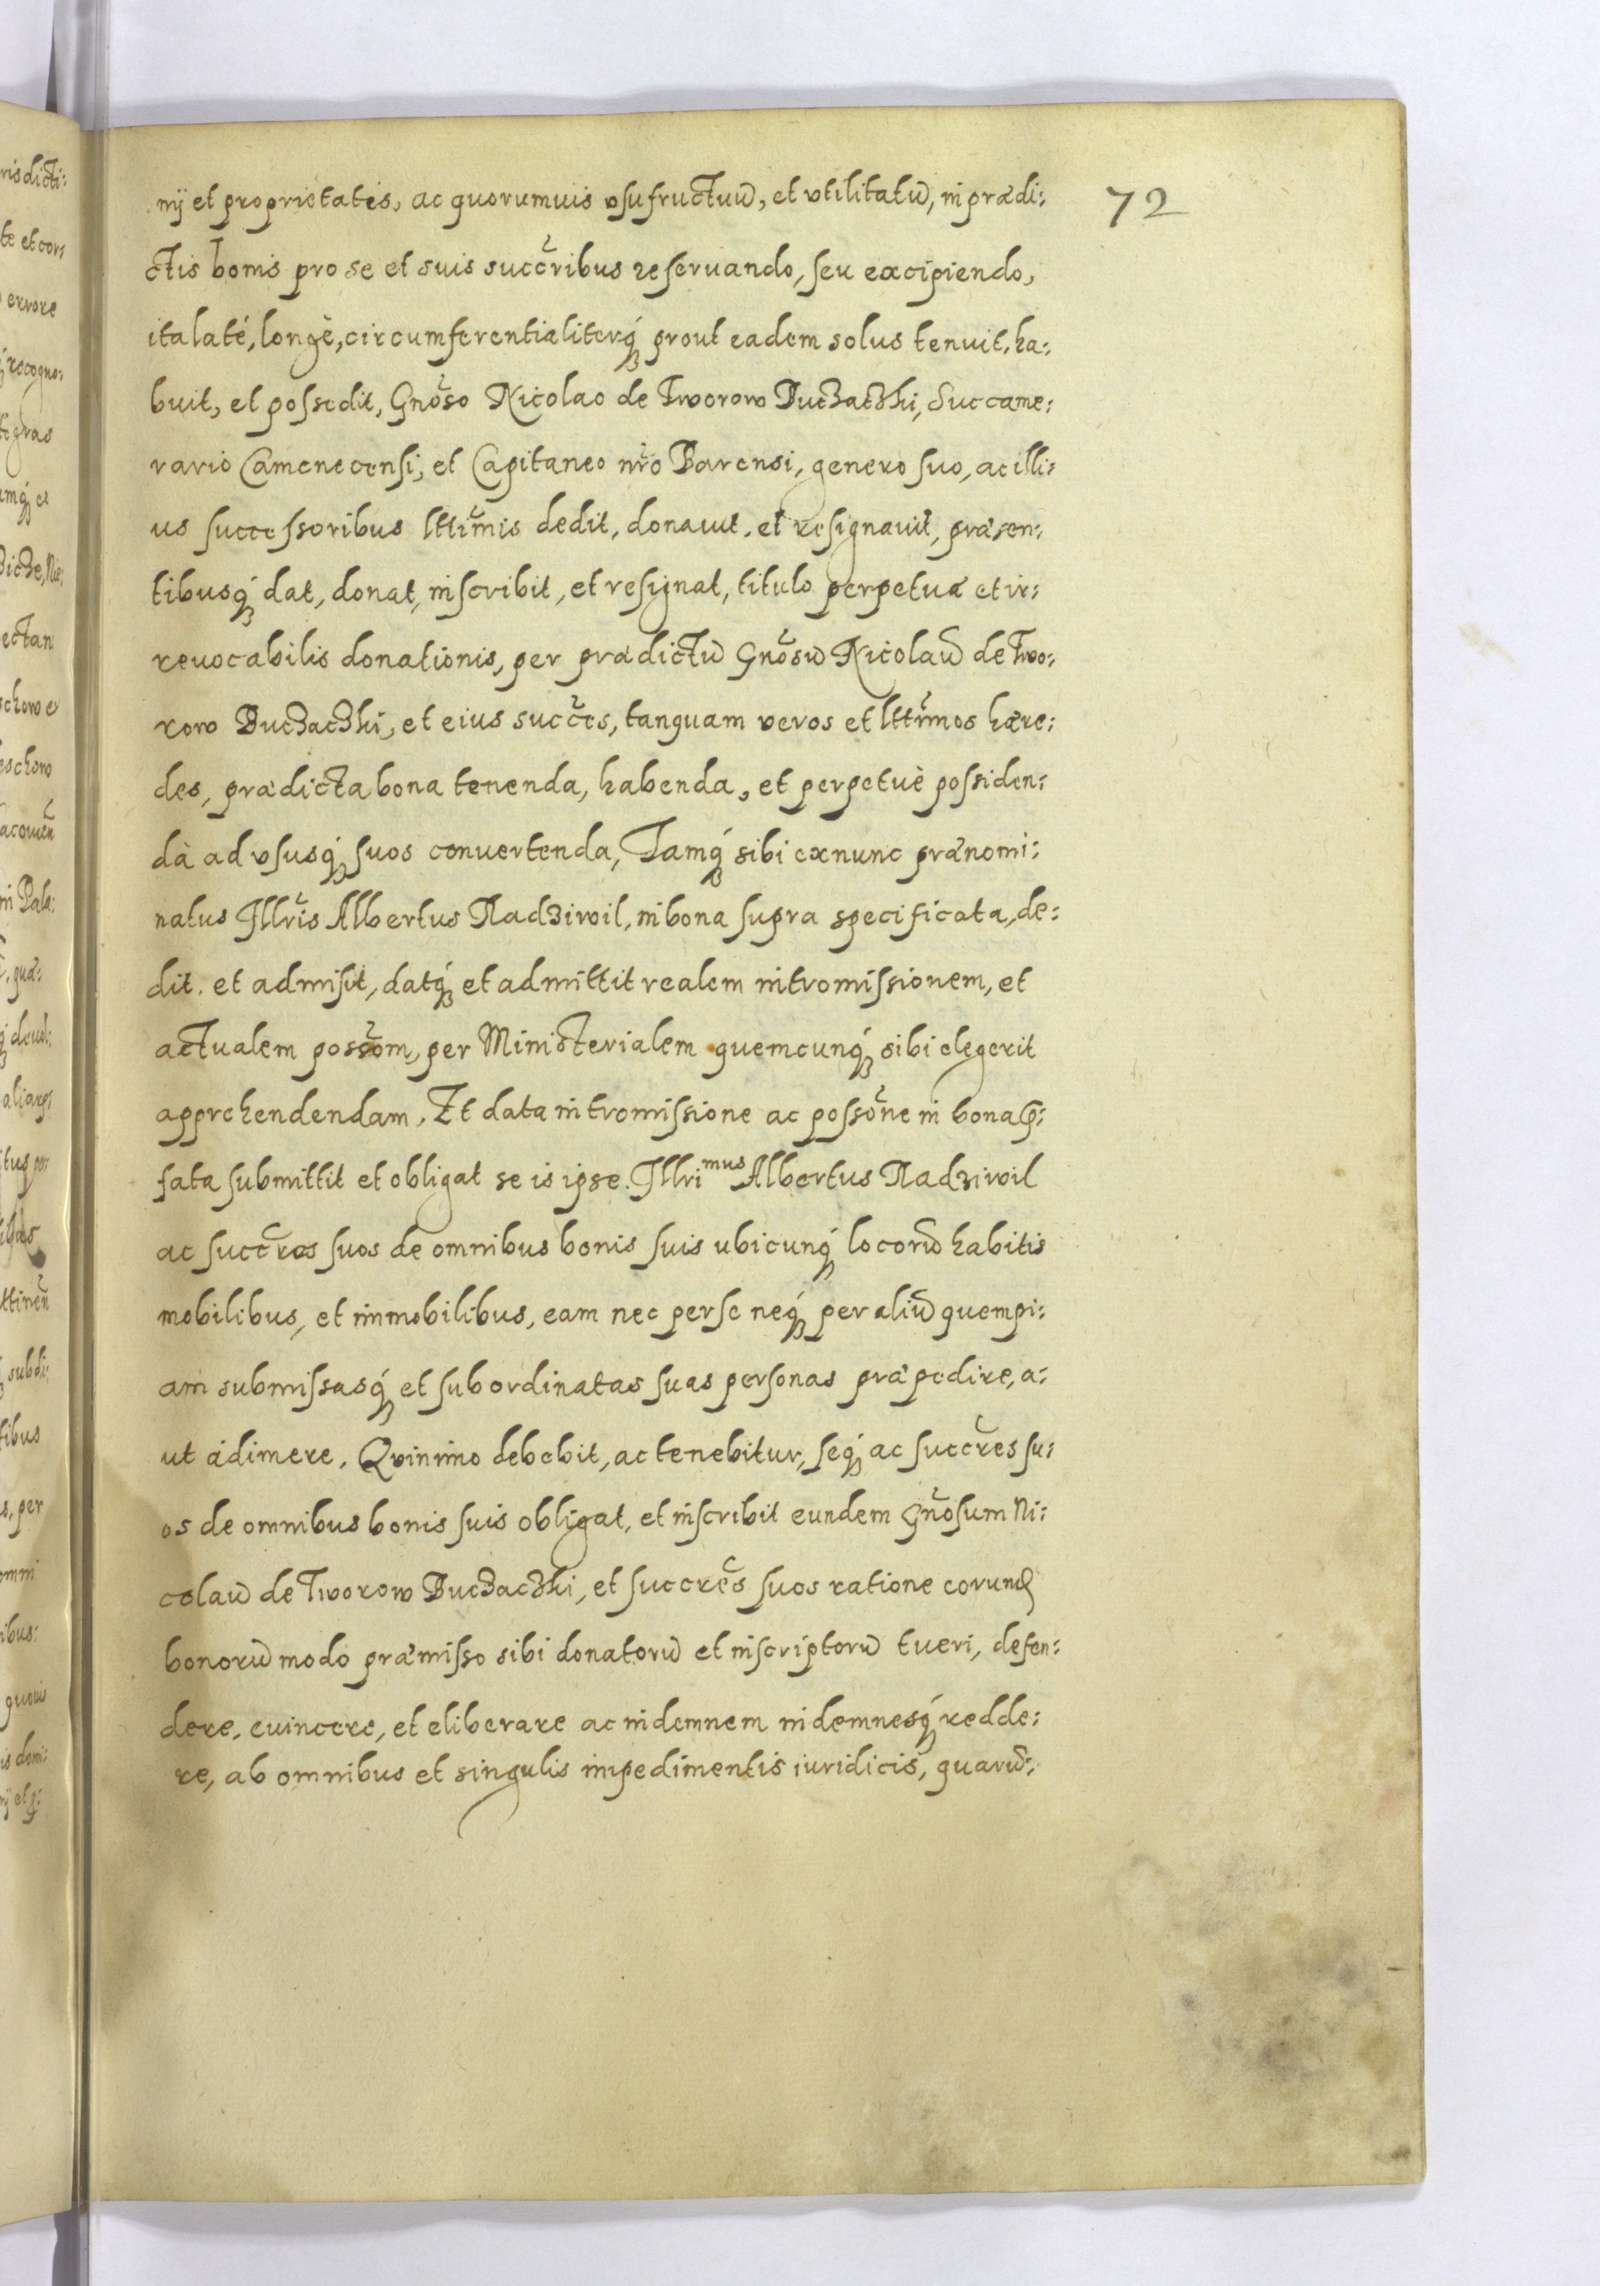 72
nij et proprietatis, ac quorumuis vsufructuũ, et vtilitatũ, in prædi:
ctis bonis pro se et suis succribus reseruando, seu excipiendo,
ita laté, longè, circumferentialiterq́ prout eadem solus tenuit, ha:
buit, et possedit, Gnõso Nicolao de Tworow Buczaczki, Succame:
rario Camenecensi, et Capitaneo nr̃o Barensi, genero suo, ac illi:
us successoribus lttimis dedit, donauit, et resignauit, præsen:
tibusq́ dat, donat, inscribit, et resignat, titulo perpetuæ et ir:
reuocabilis donationis, per prædictũ Gnõsũ Nicolaũ de Two:
row Buczaczki, et eius succes, tanquam veros et lttimos hære:
des, prædicta bona tenenda, habenda, et perpetuè possiden:
dà ad vsusq́ suos conuertenda, Iamq́ sibi ex nunc prænomi:
natus Illris Albertus Radziwil, in bona supra specificata, de:
dit. et admisit, datq́ et admittit realem intromissionem, et
actualem possõm, per Ministerialem quemcunq́ sibi elegerit
apprehendendam. Et data intromissione ac possõne in bona p̱:
fata submittit et obligat se is ipse. Illrimus Albertus Radziwil
ac succres suos de omnibus bonis suis ubicunq́ locorũ habitis
mobilibus, et immobilibus, eam nec per se neq́ per aliũ quempi:
am submissasq́ et subordinatas suas personas præpedire, a:
ut adimere. Quinimo debebit, ac tenebitur, seq́ ac succres su:
os de omnibus bonis suis obligat, et inscribit eundem Gnõsum Ni:
colaũ de Tworow Buczaczki, et succres suos ratione eorund
bonorũ modo præmisso sibi donatorũ et inscriptorũ tueri, defen:
dere, euincere, et eliberare ac indemnem indemnesq́ redde:
re, ab omnibus et singulis impedimentis iuridicis, quarũ: